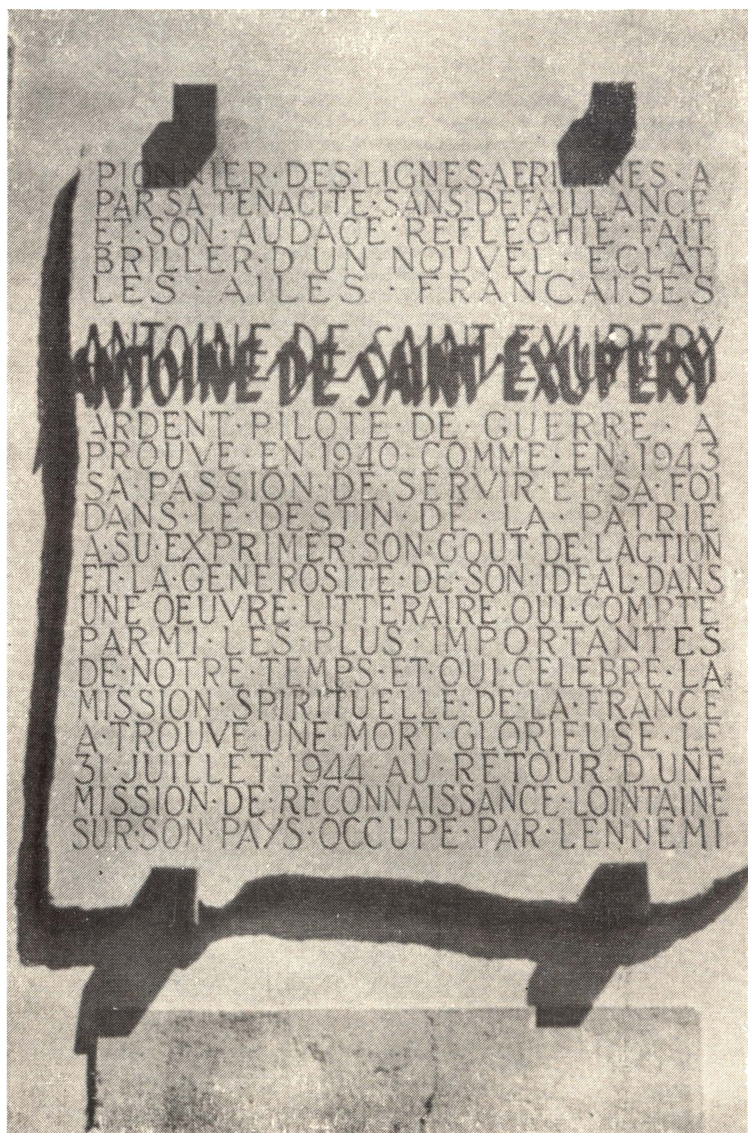 PIONNIER·DES·LIGNES·AERIENNES·A
PAR·SA·TENACITE·SANS·DEFAILLANCE
ET·SON·AUDACE·REFLECHIE·FAIT
BRILLER·D UN·NOUVEL·ECLAT
LES·AILES·FRANCAISES
ANTOINE DE SAINT EXUPERY
ARDENT·PILOTE·DE·GUERRE·A
PROUVE·EN·1940·COMME·EN·1943
SA·PASSION·DE·SERVIR·ET·SA·FOI
DANS·LE·DESTIN·DE·LA·PATRIE
A·SU·EXPRIMER·SON·GOUT·DE·LACTION
ET·LA·GENEROSITE·DE·SON·IDEAL·DANS
UNE·OEUVRE·LITTERAIRE·QUI·COMPTE
PARMI·LES·PLUS·IMPORTANTES
DE·NOTRE·TEMPS·ET·QUI·CELEBRE·LA
MISSION·SPIRITUELLE·DE·LA·FRANCE
A·TROUVE·UNE·MORT·GLORIEUSE·LE
31·JUILLET·1944·AU·RETOUR·D UNE
MISSION·DE·RECONNAISSANCE·LOINTAINE
SUR·SON·PAYS·OCCUPE·PAR·LENNEMI